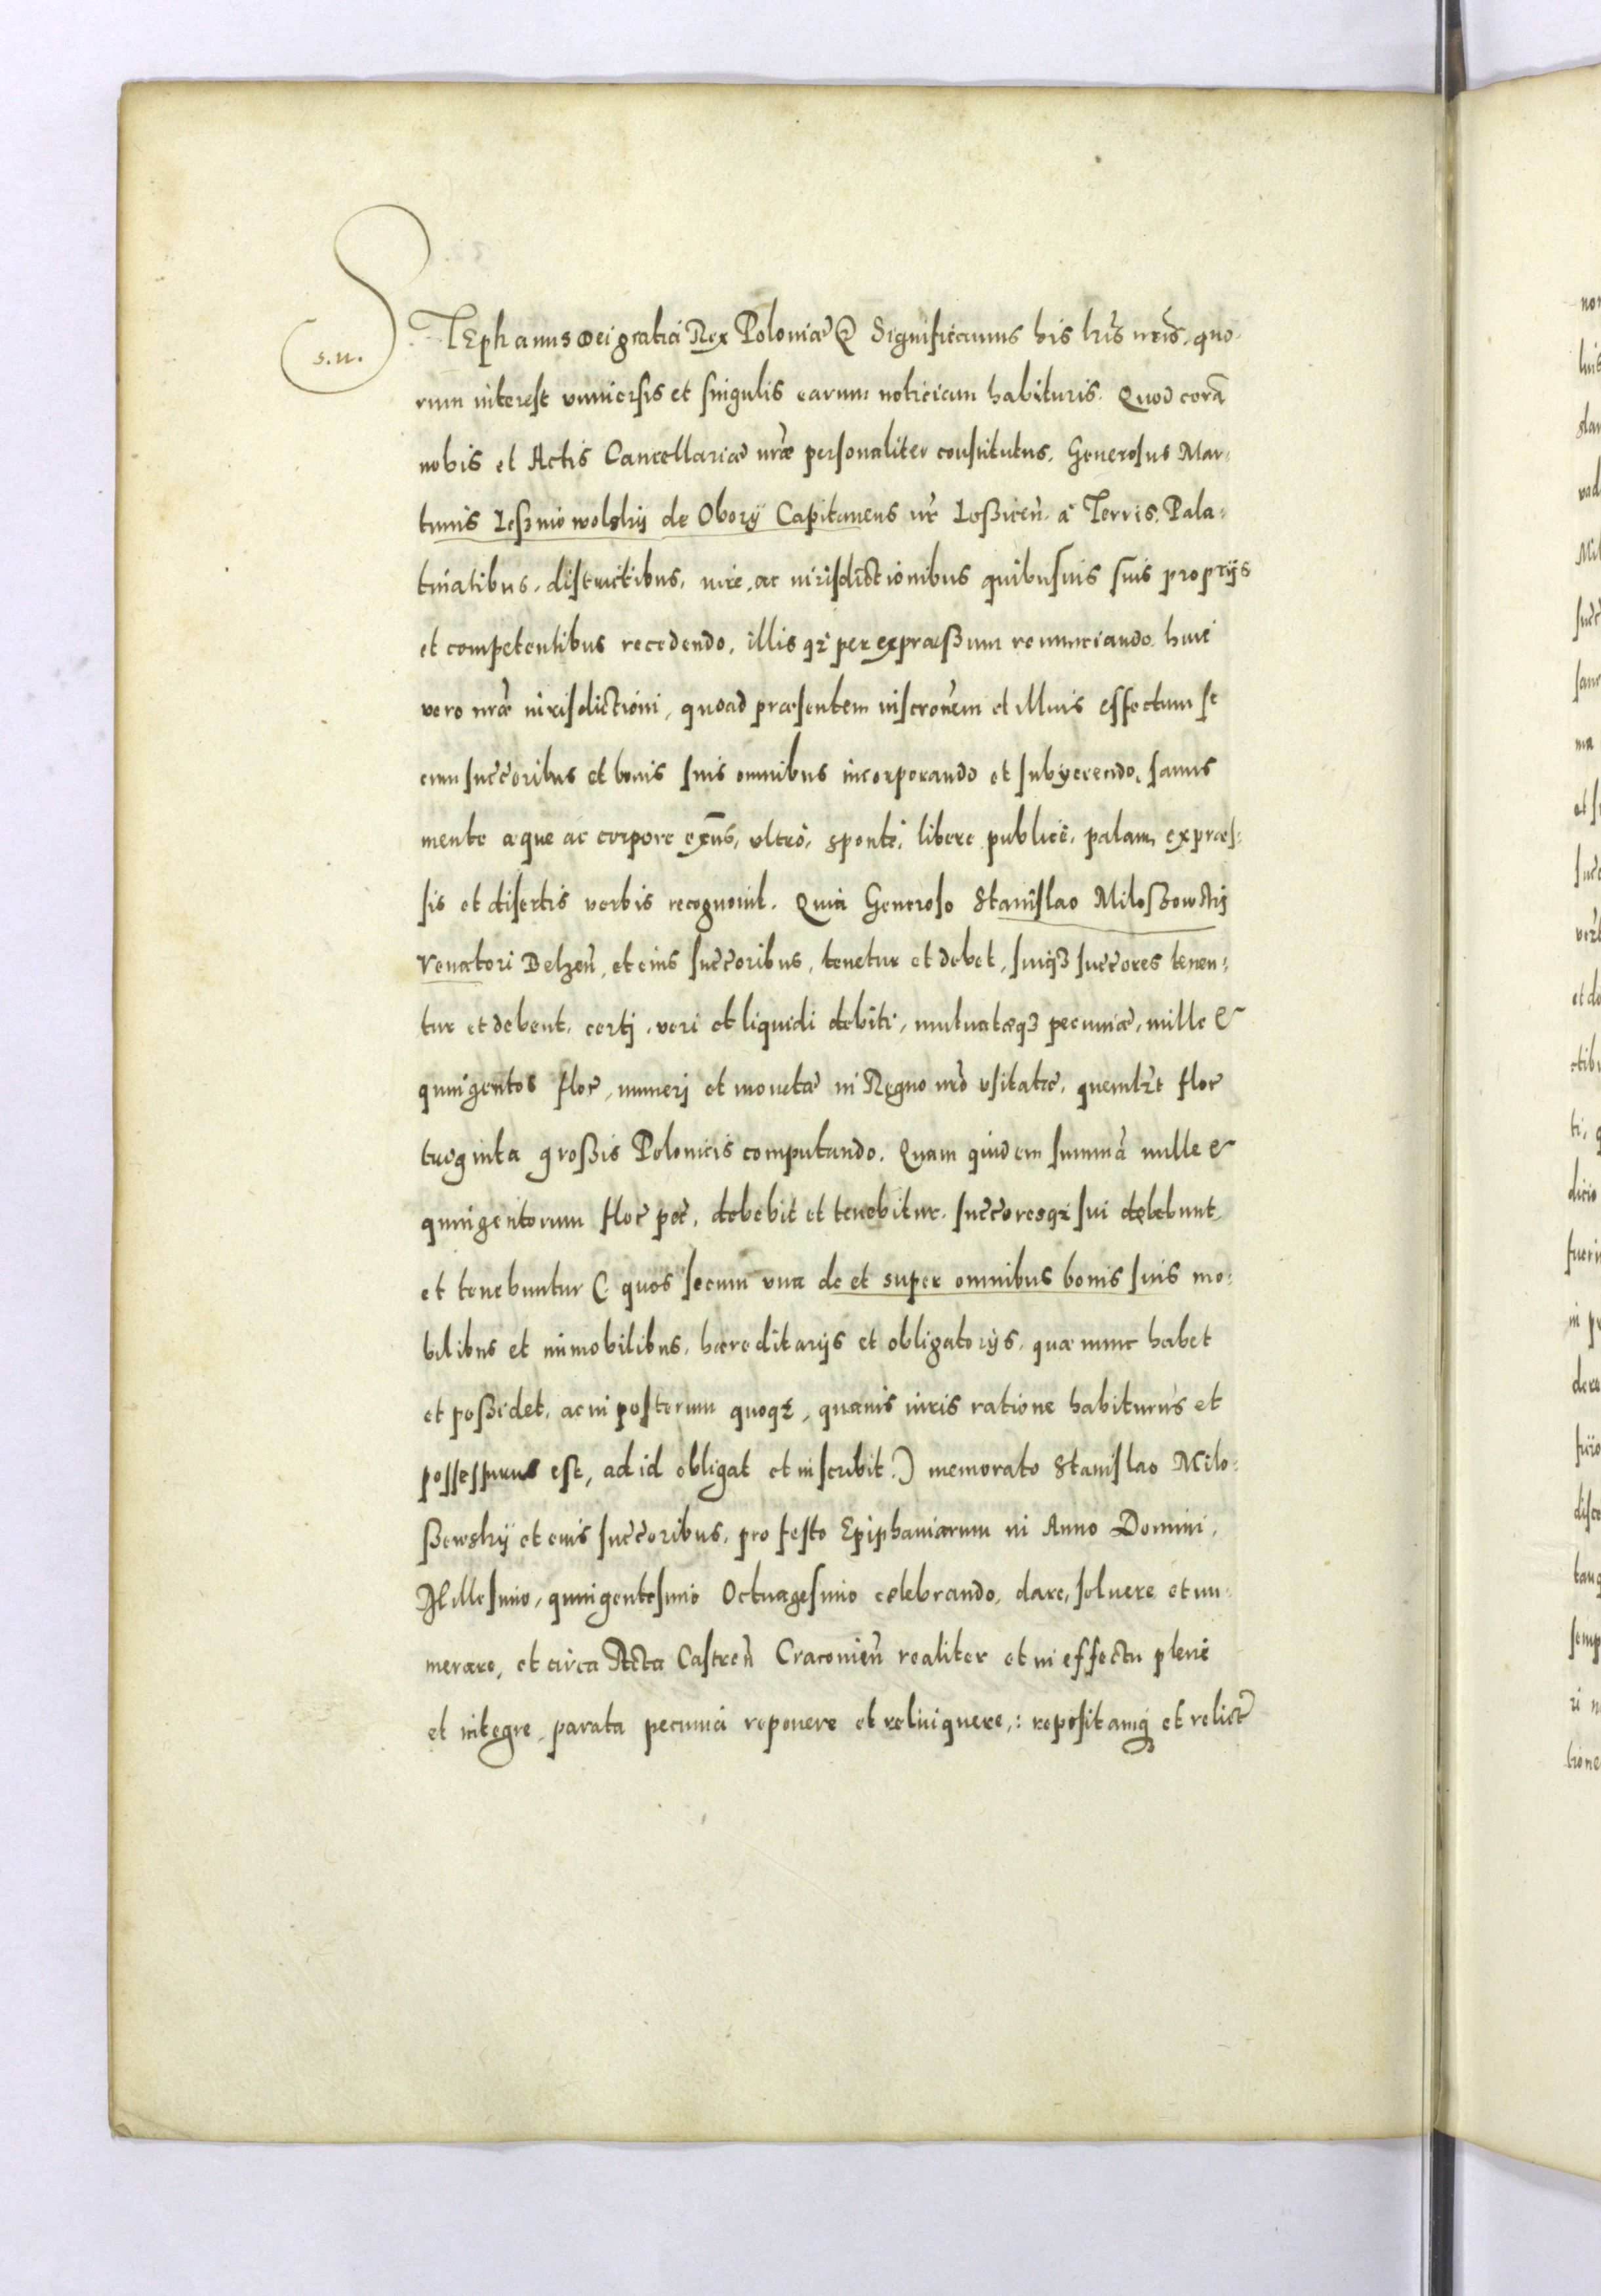 STEphanus Dei gratia Rex Poloniae & Significamus his lris nris, quo-
s.n.
rum interest vniuersis et singulis earum noticiam habituris. Quod corā
nobis et Actis Cancellariae nrae personaliter constitutus, Generosus Mar-
tinus Leßniowolskij de Oborÿ Capitaneus nr Loßiceñ. à Terris, Pala-
tinatibus, districtibus, iure, ac iurisdictionibus quibusuis suis proprijs
et competentibus recedendo, illisqȝ per expraeßum renunciando. huic
vero nrae iurisdictioni, quoad praesentem inscronem et illius effectum se
cum succoribus et bonis suis omnibus incorporando et subÿciendo, sanus
mente aeque ac corpore exñs, vltrò, spontè, libere, publicè, palam, expraes-
sis et disertis verbis recognouit. Quia Generoso Stanislao Miloßowskij
Venatori Belzeñ, et eius succoribus, tenetur et debet, suiqȝ succores tenen-
tur et debent, certj, veri et liquidi debiti, mutuataeqȝ pecuniae, mille &
quingentos flor, numerj et monetae in Regno nro vsitatae, quemlꝫt flor
triginta großis Polonicis computando. Quam quidem summā mille &
quingentorum flor pec, debebit et tenebitur, succoresqȝ sui debebunt
et tenebuntur (quos secum vna de et super omnibus bonis suis mo-
bilibus et immobilibus, haereditarijs et obligatorÿs, quae nunc habet
et poßidet, ac in posterum quoqȝ, quauis iuris ratione habiturus et
possessurus est, ad id obligat et inscribit.) memorato Stanislao Milo-
ßewskij et eius succoribus, pro festo Epiphaniarum in Anno Domini,
Millesimo, quingentesimo Octuagesimo celebrando, dare, soluere et nu-
merare, et circa Acta Castreñ Cracouieñ realiter et in effectu plenè
et integre, parata pecunia reponere et relinquere,: repositamqȝ et relict